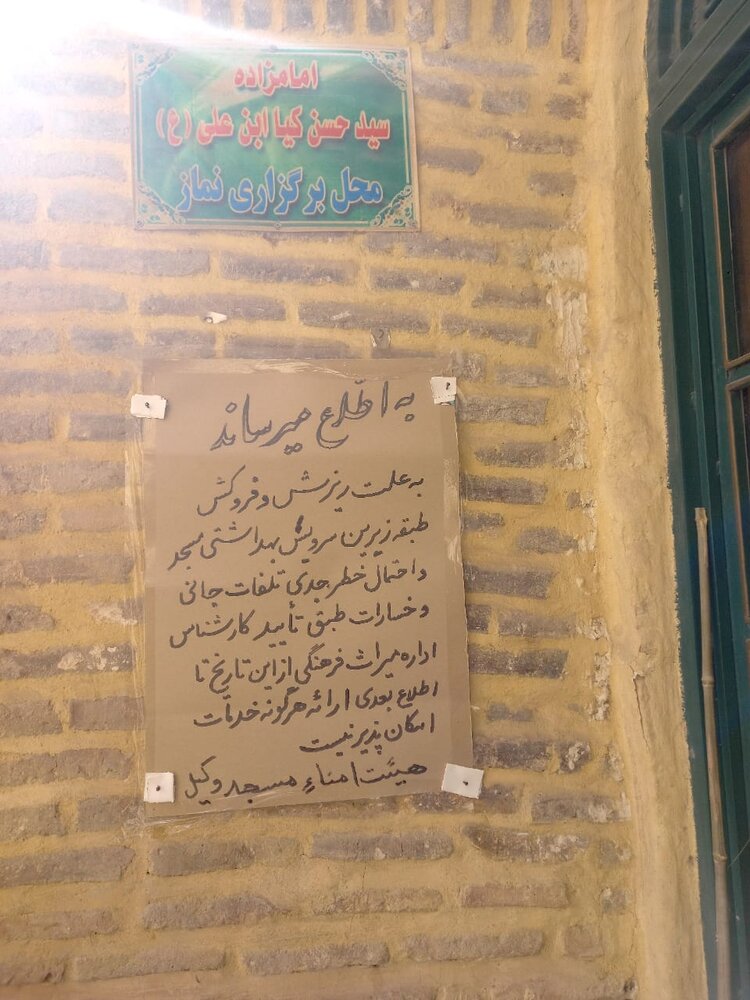 امامزاده
سید حسن کیا ابن علی (ع)
محل برگزاری نماز
به اطّلاع میرساند
به علت ریزش و فروکش
طبقه زیرین سرویس بهداشتی مسجد
و احتمال خطر جدی تلفات جانی
و خسارات طبق تأیید کارشناس
اداره میراث فرهنگی از این تاریخ تا
اطلاع بعدی ارائه هرگونه خدمات
امکان پذیر نیست
هیئت امناءِ مسجد وکیل